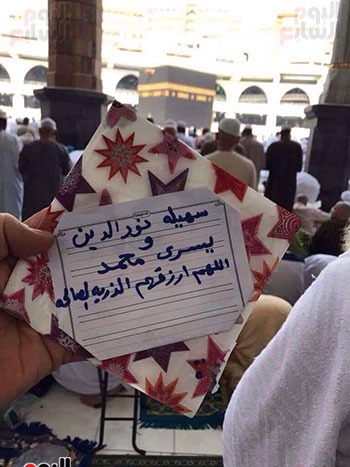 اليوم السابع
سهيله نور الدين
و
يسرى محمد
اللهم ارزقهم الذريه الصالحه